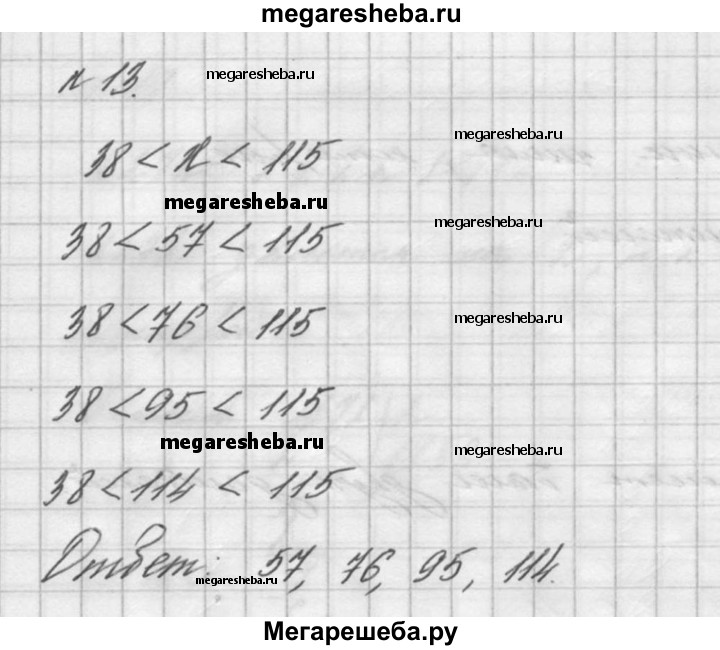 megaresheba.ru
№ 13. megaresheba.ru
megaresheba.ru
38 < x < 115
megaresheba.ru
megaresheba.ru
38 < 57 < 115
38 < 76 < 115 megaresheba.ru
38 < 95 < 115
megaresheba.ru
megaresheba.ru
38 < 114 < 115
Ответ: 57, 76, 95, 114.
megaresheba.ru
Мегарешеба.ру